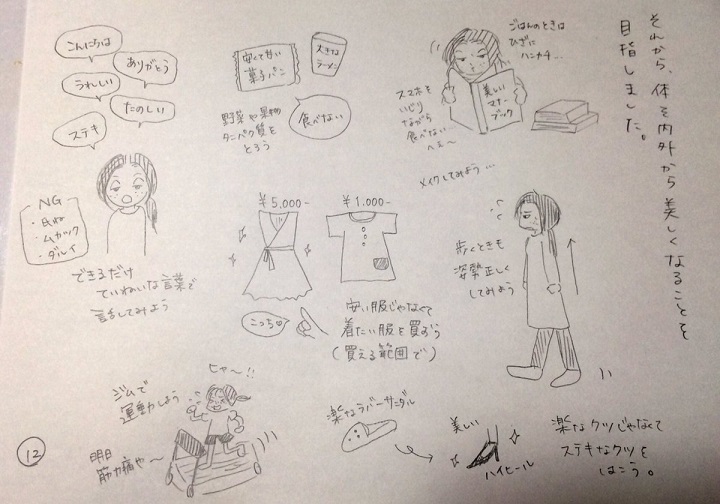 それから、体を内外から美しくなることを
目指しました。
こんにちは
ありがとう
うれしい
たのしい
ステキ
NG
・死ね
・ムカツク
・ダルイ
できるだけ
ていねいな言葉で
話してみよう
安くて甘い
菓子パン
大きな
ラーメン
野菜や果物
タンパク質を
とろう
食べない
ごはんのときは
ひざに
ハンカチ…
美しい
マナー
ブック
スマホを
いじり
ながら
食べない…
へえ〜
メイクしてみよう…
¥5,000-
¥1,000-
こっち♡
安い服じゃなくて
着たい服を買おう
(買える範囲で)
歩くときも
姿勢正しく
してみよう
ジムで
運動しよう
ヒャ〜!!
明日
筋肉痛や〜
楽なラバーサンダル
美しい
ハイヒール
楽なクツじゃなくて
ステキなクツを
はこう。
12